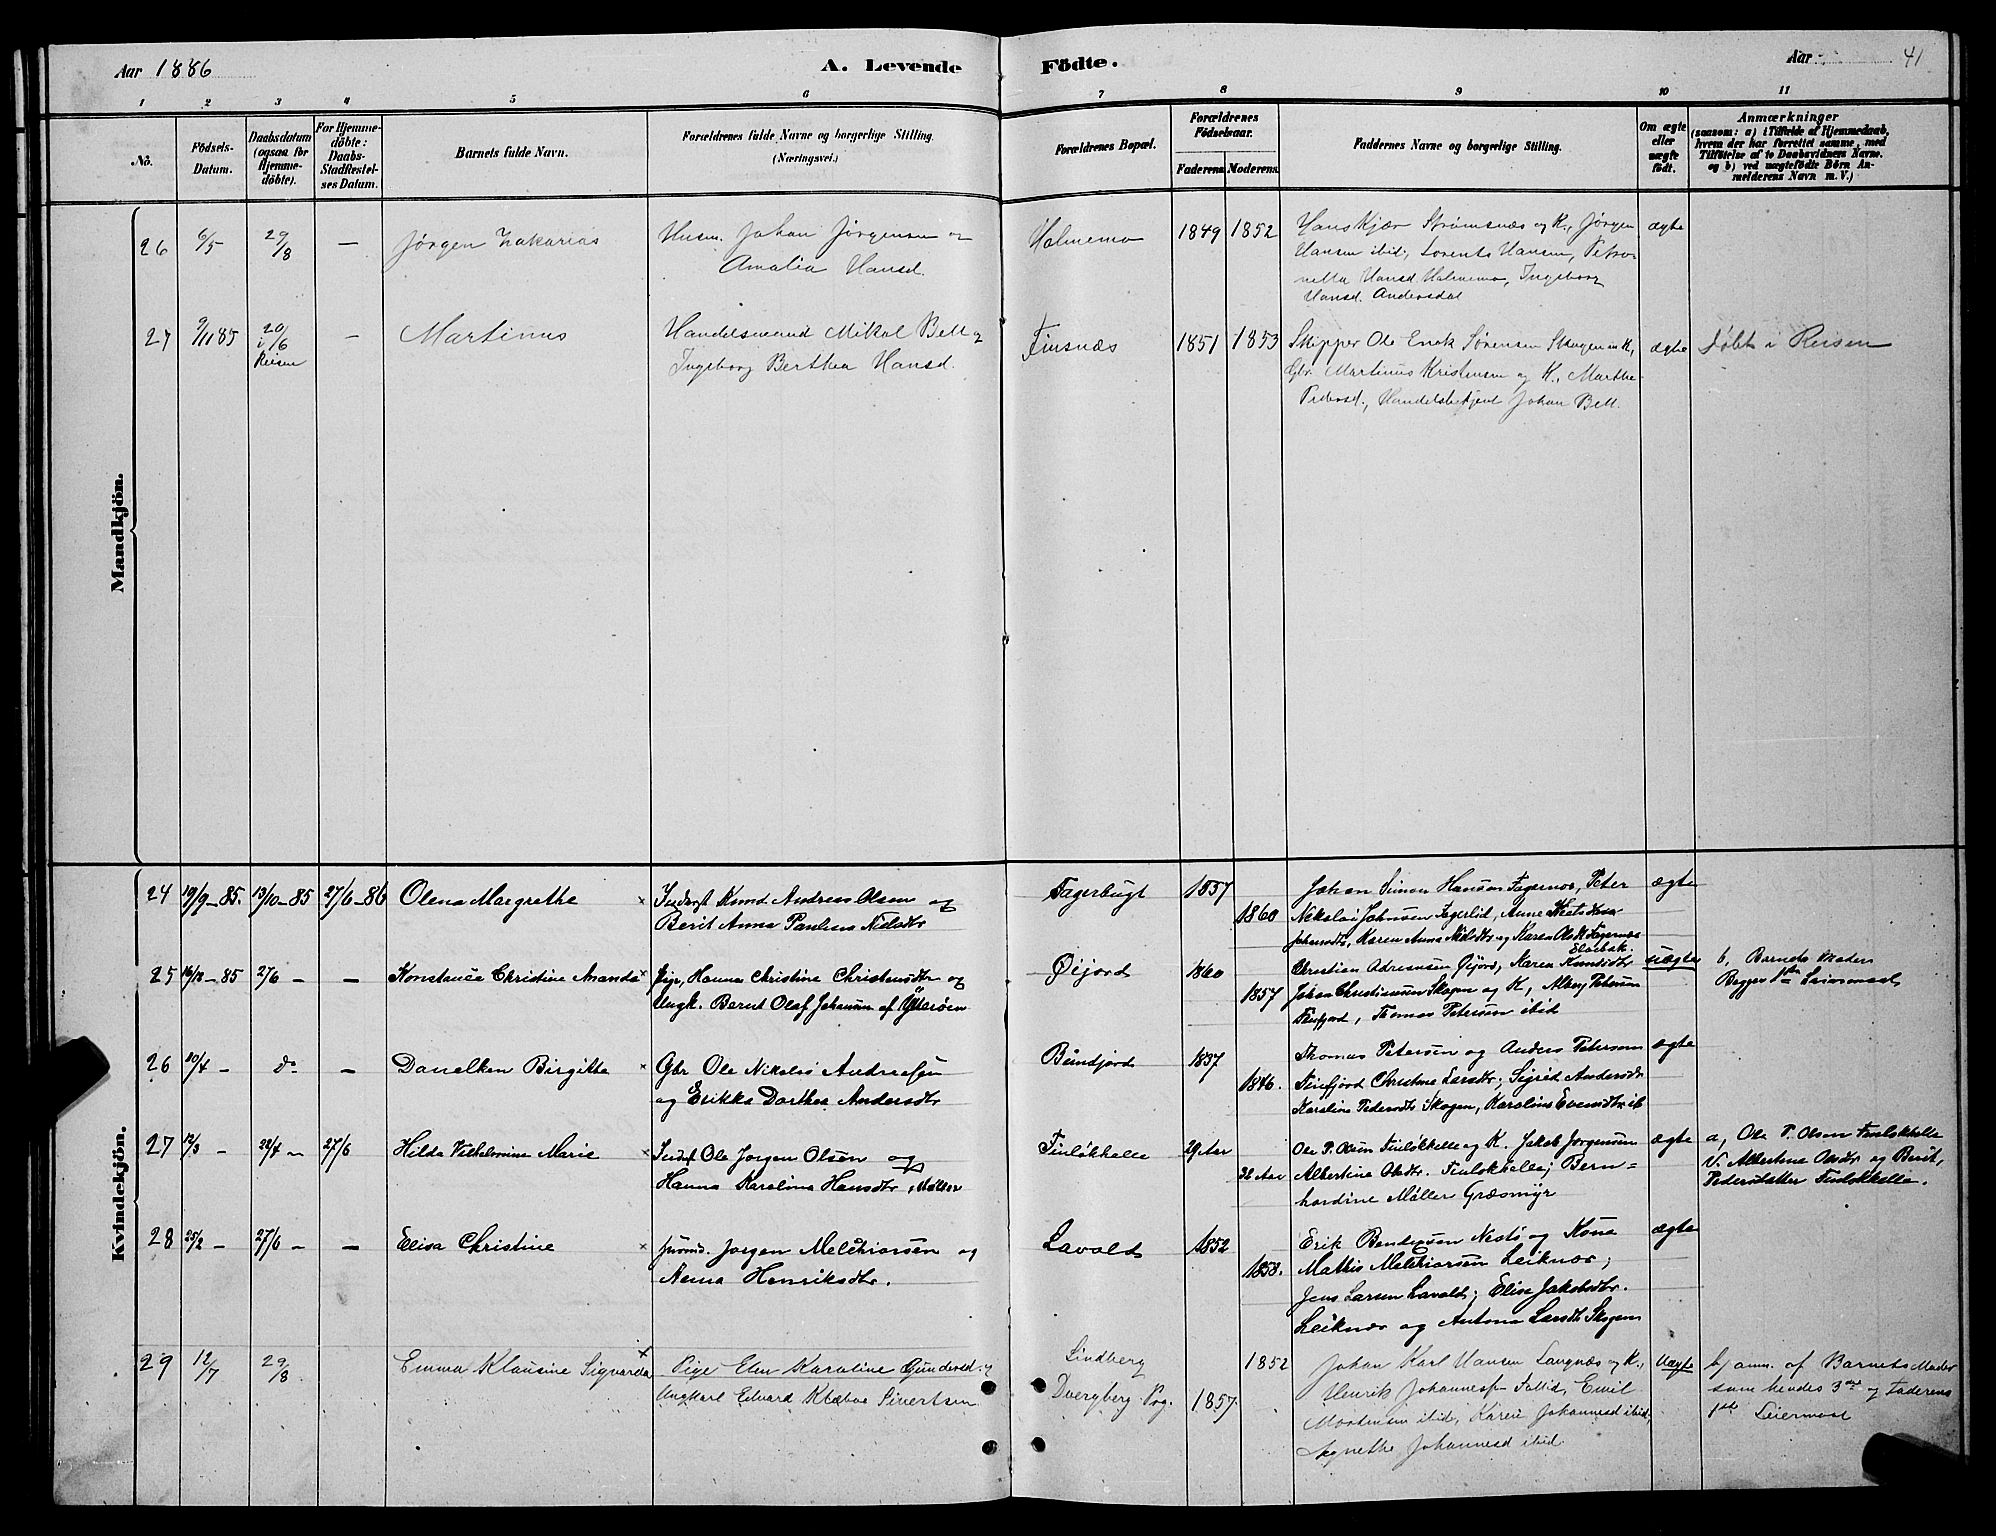 Aar 1886
A. Levende
Födte.
Aar
41
1 2 3 4 5 6 7 8 9 10 11
No.
Födsels-
Datum.
Daabsdatum
(ogsaa for
Hjemme-
döbte).
For Hjemme-
döbte:
Daabs-
Stadfæstel-
ses Datum.
Barnets fulde Navn.
Forældrenes fulde Navne og borgerlige Stilling.
(Næringsvei.)
Forældrenes Bopæl.
Forældrenes
Födselsaar.
Faderens Moderens
Faddernes Navne og borgerlige Stilling.
Om ægte
eller
uægte
födt.
Anmærkninger
(saasom: a) i Tilfælde af Hjemmedaab,
hvem der har forrettet samme, med
Tilföielse af to Daabsvidners Navne.
og b) ved uægtefödte Börn An-
melderens Navn m. V.)
Mandkjön.
26 6/5 29/8 — Jørgen Zakarias
Husm. Johan Jørgensen og
Amalia Hansd.
Holmemo 1849 1852
Hans Kjær Strømsnæs og K., Jørgen
Hansen ibid, Lorents Hansen, Petro-
nella Hansd. Holmemo, Ingeborg
Hansd. Andersdal
ægte
27 9/11 85 20/6 i Reisen — Martinus
Handelsmand Mikal Bell og
Ingeborg Berthea Hansd.
Finsnæs 1851 1853
Skipper Ole Enok Sørensen Skogen m K,
Gbr. Martinus Kristensen og K., Marthe
Pedersd., Handelsbetjent Johan Bell.
ægte
døbt i Reisen
Kvindekjön.
24 19/9-85. 13/10-85 27/6-86 Olena Margrethe
Inderst Knud Andreas Olsen og
Berit Anna Paulina Nilsdtr
Fagerbugt 1857
1860
Johan Simon Hansen Fagernes, Peter
Nikolai Johnsen Fagerlid, Anne
Johansdtr, Karen Anna Nilsdtr og Karen Ols
ægte
25 16/12-85 27/6 — — Konstance Christine Amanda
Pige, Hanna Christine Christensdtr og
Ungk. Bernt Olaf Johansen af Ytterøen
Øijord 1860
1857
Christian Adriansen Øijord, Karen Knudsdtr
Johan Christiansen Skogen og K, Alberg Petersen
Finfjord, Thomas Petersen ibid
uægte
b, Barnets Moder
Begges 1ste Leiermaal
26 10/4 — do — Danelken Birgitte
Gbr Ole Nikolai Andreasen
og Erikka Dorthea Andersdtr
Bundjord 1837
1846.
Thomas Petersen og Anders Petersen
Finfjord Christine Larsdtr, Sigrid Andersdtr
Karoline Pedersdtr Skogen, Karoline Evensdtr ib
ægte
27 12/3 — 22/4 — 27/6 Hilda Vilhelmine Marie
Inderst Ole Jorgen Olsen og
Hanna Karoline Hansdtr
Finløkkelle 29 Aar
32 Aar
Ole P. Olsen Finløkkelle og K. Jakob Jorgensen
Albertine Olsdtr. Finløkkelle; Bern=
hardine Møller Græsmyr
ægte
a, Ole P. Olsen Finløkkelle
V. Albertina Olsdtr og Berit
Pedersdatter Finløkkelle.
28 25/2 — 27/6 — — Elisa Christine
Jorgen Melchiorsen og
Anna Henriksdtr.
Lavold 1852
1858.
Erik Bendixsen Nestø og Kone
Mathis Melchiorsen Leiknes;
Jens Larsen Lavold; Elise Jakobsdtr.
Leiknes og Antona Larsdtr Skogen
ægte
29 12/7 29/8 Emma Klausine Sigvarda
Pige Elen Karoline Gundersd. og
Ungkarl Edvard Klæboe Sivertsen
Lindberg
Dverberg Prg.
1857
1852
Johan Karl Hansen Langnæs og K.,
Henrik Johannesen, Emil
Mortensen ibid, Karen Johannesd ibid,
Agnethe Johannesd ibid.
Uægte
b) anm. af Barnets Moder
som hendes 3die og Faderens
1ste Leiermaal